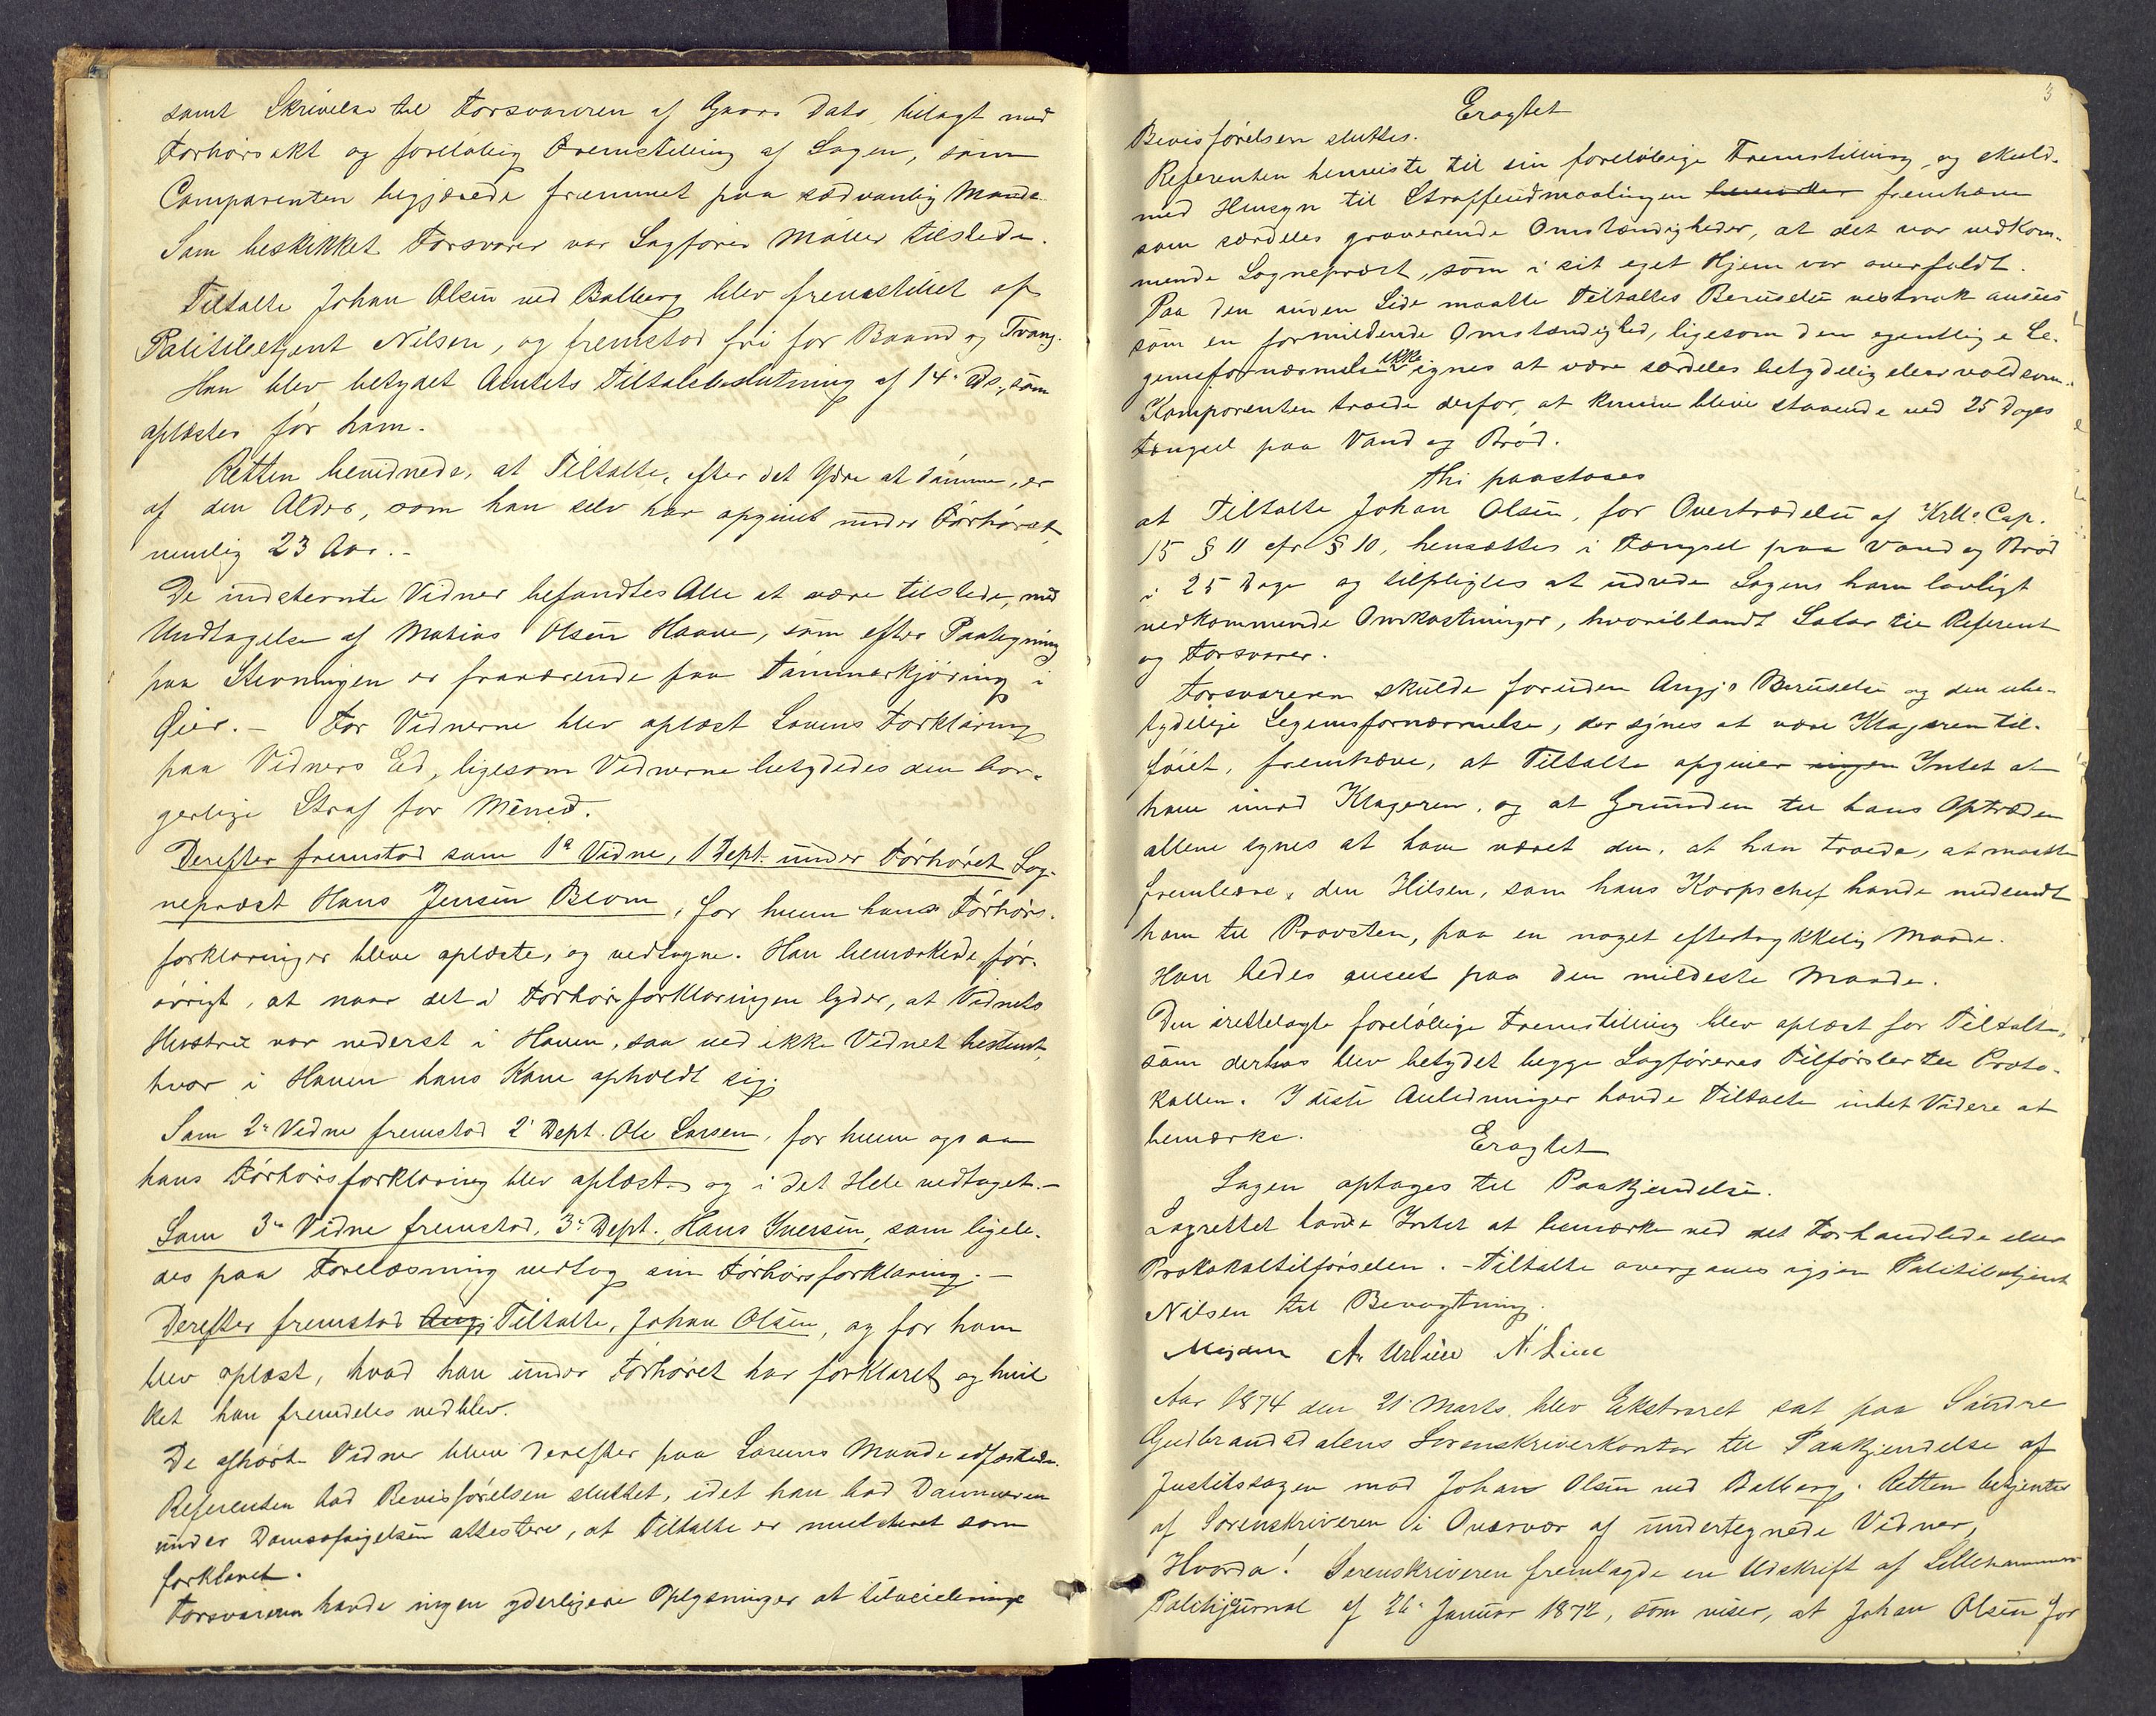 samt Skrivelse til Forsvareren af Gaars Dato, bilagt med
Forhørsakt og foreløbig Fremstilling af Sagen, som
Comparenten begjærede fremmet paa sædvanlig Maade.
Som beskikket Forsvarer var Sagfører Møller tilstede.
Tiltalte Johan Olsen ved Balberg blev fremstillet af
Politibetjent Nilsen, og fremstod fri for Baand og Tvang.
Han blev betydet Amtets Tiltalebeslutning af 14. Ds., som
oplæstes for ham.
Retten bevidnede, at Tiltalte, efter det Ydre at dømme, er
af den Alder, som han selv har opgivet under Forhøret,
nemlig 23 Aar. -
De indstevnte Vidner befandtes Alle at være tilstede, med
Undtagelse af Matias Olsen Haave, som efter Paategning
paa Stevningen er fraværende paa Tømmerkjøring i
Øier. - For Vidnerne blev oplæst Lovens Forklaring
paa Vidners Ed, ligesom Vidnerne betydedes den bor-
gerlige Straf for Mened.
Derefter fremstod som 1e Vidne, 1 Dept. under Forhøret Sog-
neprest Hans Jensen Blom, for hvem hans Forhørs-
forklaringer bleve oplæste, og vedtagne. Han bemærkede for-
øvrigt, at naar det i Forhørsforklaringen lyder, at Vidnets
Hustru var nederst i Haven, saa ved ikke Vidnet bestemt,
hvor i Haven hans Kone opholdt sig.
Som 2e Vidne fremstod 2e Dept. Ole Larsen, for hvem ogsaa
hans Forhørsforklaring blev oplæst og i det Hele vedtaget. -
Som 3e Vidne fremstod, 3e Dept. Hans Iversen, som ligele-
des paa Forelæsning vedtog sin Forhørsforklaring. -
Derefter fremstod Ang. Tiltalte, Johan Olsen, og for ham
blev oplæst, hvad han under Forhøret har forklaret og hvil
ket han fremdeles vedblev.
De afhørte Vidner bleve derefter paa Lovens Maade edfæstede.
Referenten bad Bevisførelsen sluttet, idet han bad Dommeren
under Domsafsigelsen attestere, at Tiltalte er mulcteret som
forklaret.
Forsvareren havde ingen yderligere Oplysninger at tilveiebringe
3
Eragtet
Bevisførelsen sluttes.
Referenten henviste til sin foreløbige Fremstilling, og skuld-
med Hensyn til Straffeudmaalingen bemærke fremhæve
som særdeles graverende Omstændigheder, at det var vedkom-
mende Sogneprest, som i sit eget Hjem var overfaldt.
Paa den anden Side maatte Tiltaltes Beruselse vistnok ansees
som en formildende Omstændighed, ligesom den egentlige Le-
gemsfornærmelse ikke synes at være særdeles betydelig eller voldsom.
Komparenten troede derfor, at kunne blive staaende ved 25 Dages
Fængsel paa Vand og Brød.
thi paastaaes
at Tiltalte Johan Olsen, for Overtrædelse af Krll. Cap.
15 § 11 cfr § 10, hensættes i Fængsel paa Vand og Brød
i 25 Dage og tilpligtes at udrede Sagens ham lovligt
vedkommende Omkostninger, hvoriblandt Salar til Referent
og Forsvarer.
Forsvareren skulde foruden Angj. Beruselse og den ube-
tydelige Legemsfornærmelse, der synes at være Klageren til-
føiet, fremhæve, at Tiltalte opgiver ingen Intet at
have imod Klageren, og at Grunden til hans Optræden
allene synes at have været den, at han troede, at maatte
frembære den Hilsen, som hans Korpschef havde medsendt
ham til Provsten, paa en noget eftertrykkelig Maade.
Han bedes anseet paa den mildeste Maade.
Den irettelagte foreløbige Fremstilling blev oplæst for Tiltalte,
som derhos blev betydet begge Sagføreres Tilførsler til Proto-
kollen. I disse Anledninger havde Tiltalte intet Videre at
bemærke.
Eragtet
Sagen optages til Paakjendelse.
Lagrettet havde Intet at bemærke ved det Forhandlede eller
Protokoltilførselen. - Tiltalte overgaves igjen Politibetjent
Nilsen til Bevogtning.
N. Lie
Aar 1874 den 21. Marts blev Ekstraret sat paa Søndre
Gudbrandsdalens Sorenskriverkontor til Paakjendelse af
Justitssagen mod Johan Olsen ved Balberg. Retten betjentes
af Sorenskriveren i Overvær af undertegnede Vidner,
Hvorda! Sorenskriveren fremlagde en Udskrift af Lillehammers
Politijurnal af 26. Januar 1872, som viser, at Johan Olsen for